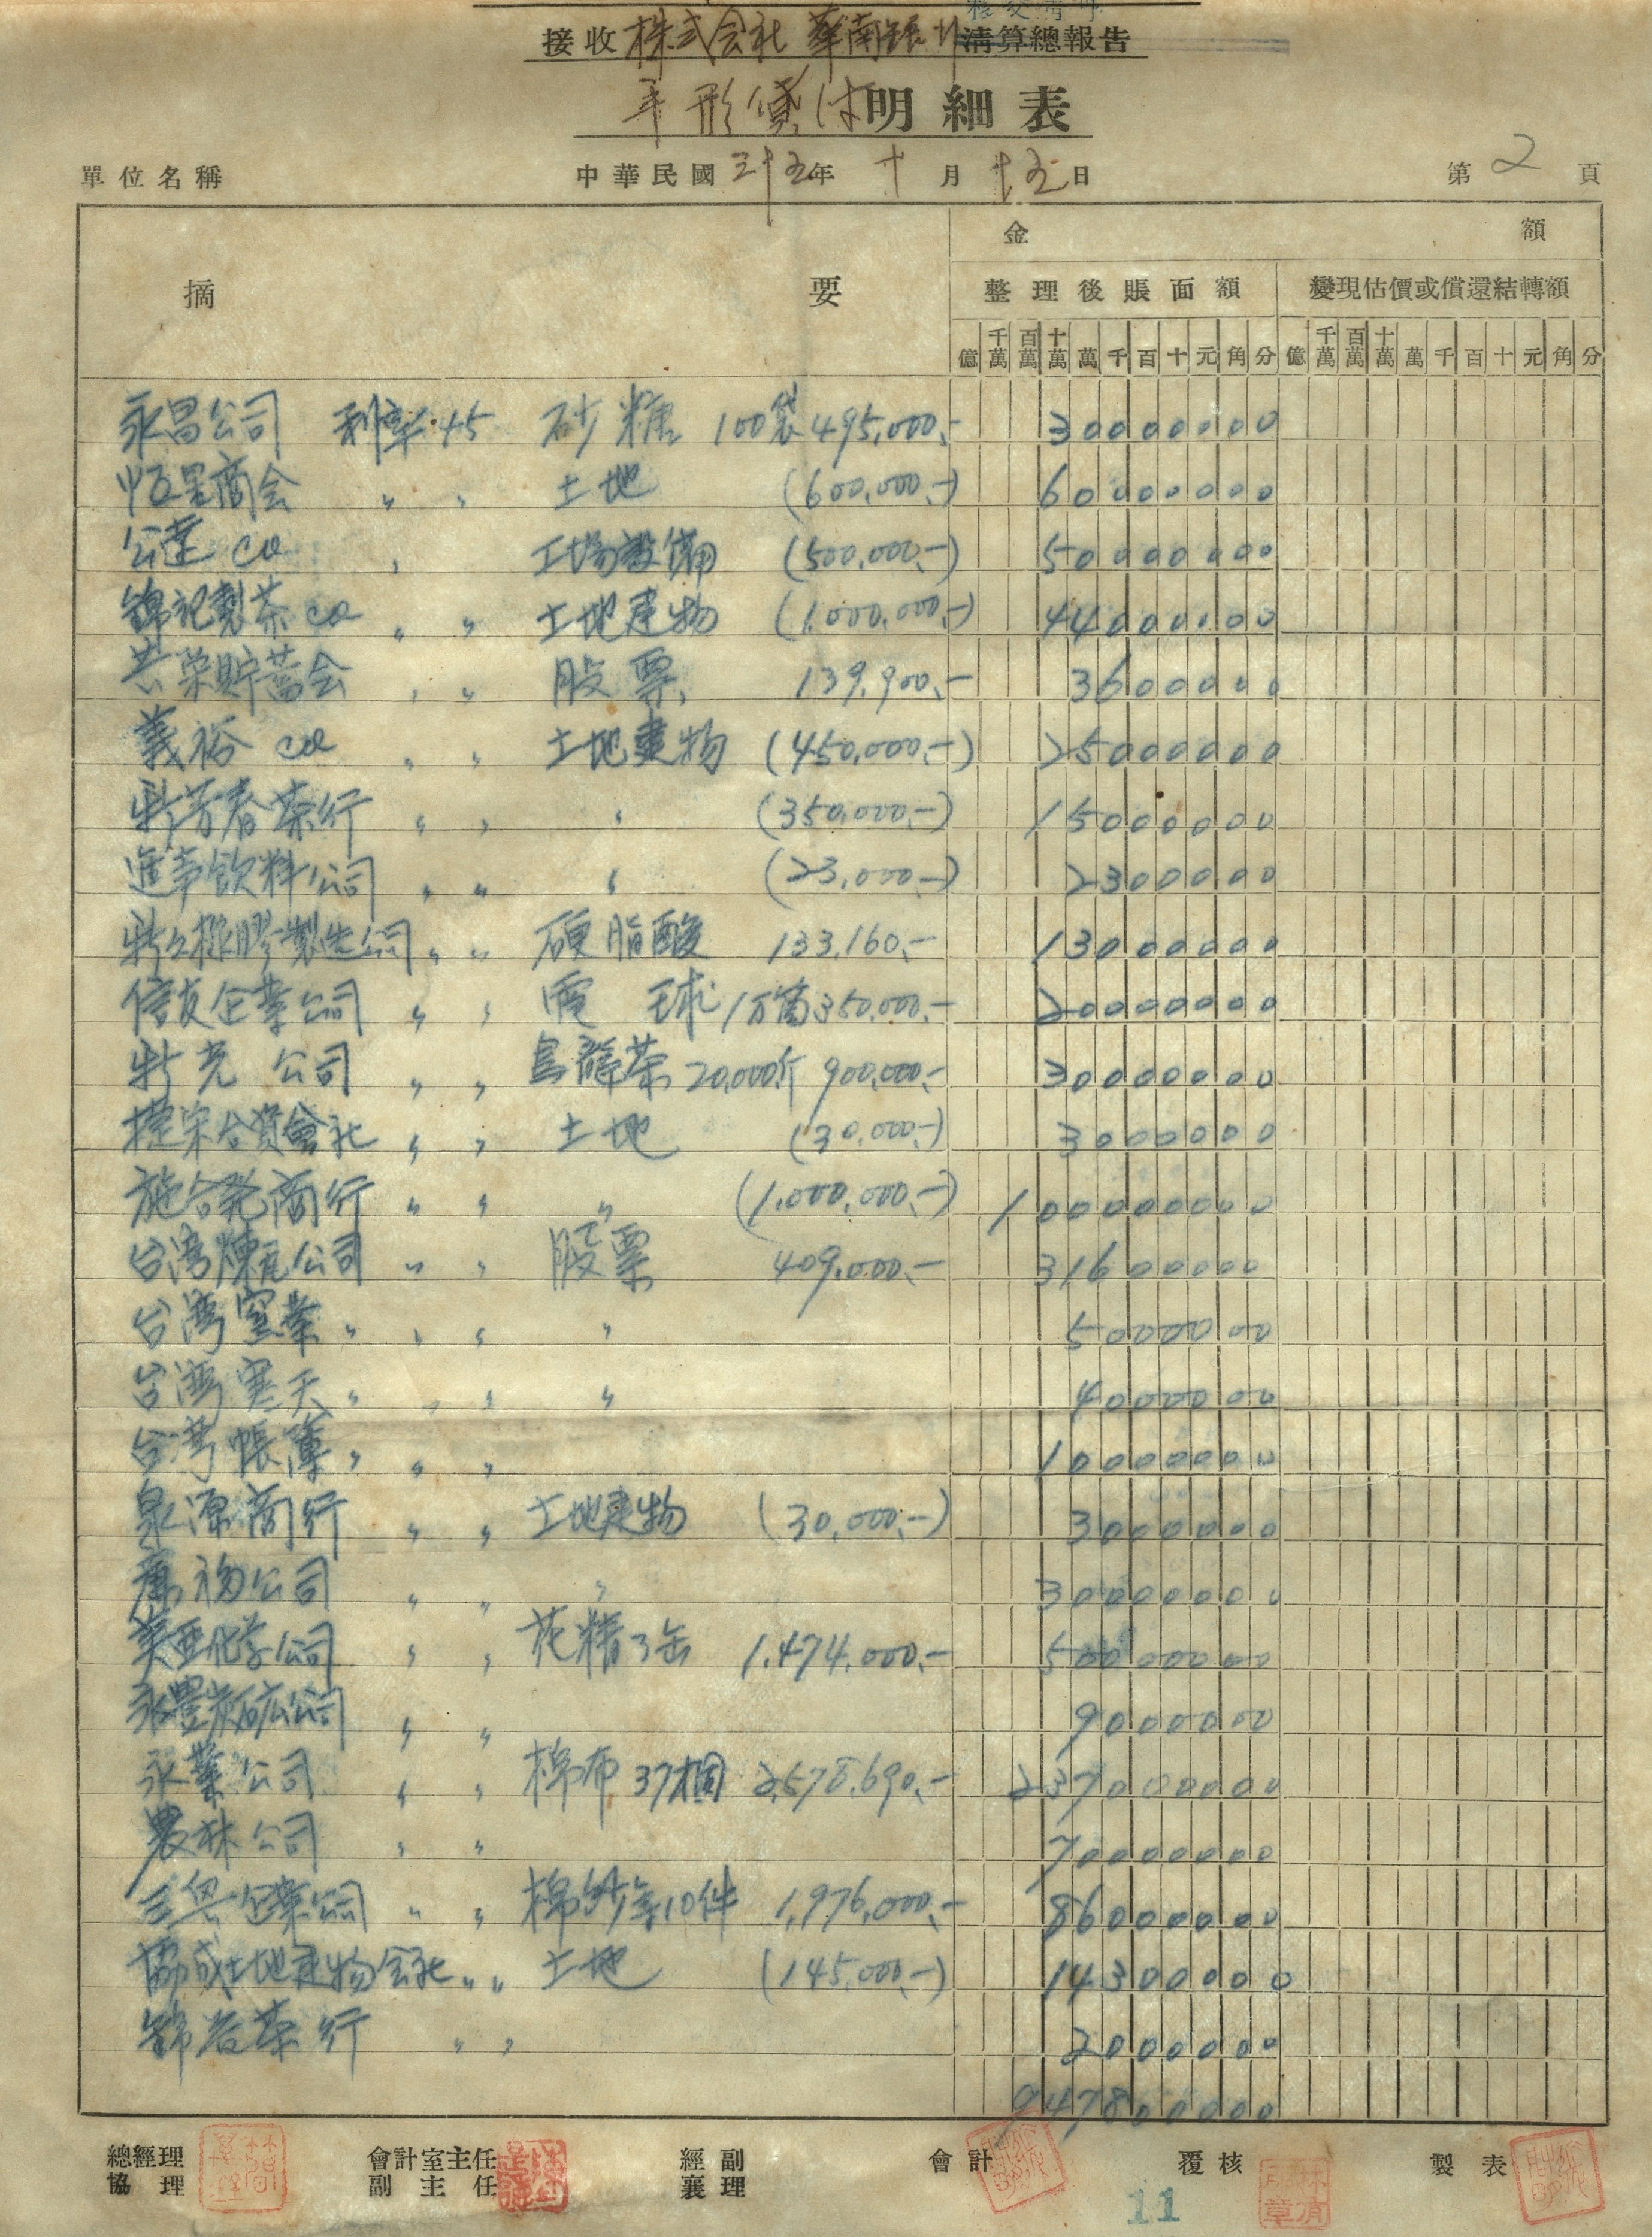 接收株式会社華南銀行清算總報告
手形貸付明細表
單位名稱 中華民國三十五年十月十五日 第2頁
摘要 金額
整理後賬面額 變現估價或償還結轉額
億 千萬 百萬 十萬 萬 千 百 十 元 角 分 億 千萬 百萬 十萬 萬 千 百 十 元 角 分
永昌公司 利率 .45 砂糖 100袋 495,000.- 30000000
恒星商会 〃 〃 土地 (600,000.-) 60000000
公達 co 〃 工場設備 (500,000.-) 50000000
錦記製茶 co 〃 〃 土地建物 (1,000,000.-) 44000000
共榮貯蓄会 〃 〃 股票 139,900.- 3600000
義裕 co 〃 〃 土地建物 (450,000.-) 25000000
新芳春茶行 〃 〃 〃 (350,000.-) 15000000
進声飲料公司 〃 〃 〃 (23,000.-) 2300000
橡膠製造公司 〃 〃 硬脂酸 133,160.- 13000000
信友企業公司 〃 〃 電球 1万箇 350,000.- 20000000
新光公司 〃 〃 烏龍茶 20,000斤 900,000.- 30000000
捷宋合資會社 〃 〃 土地 (30,000.-) 3000000
施合発商行 〃 〃 〃 (1,000,000.-) 100000000
台湾煉瓦公司 〃 〃 股票 409,000.- 31600000
台湾窯業 〃 〃 〃 〃 5000000
台湾寒天 〃 〃 〃 〃 4000000
台湾帳簿 〃 〃 〃 10000000
泉源商行 〃 〃 土地建物 (30,000.-) 3000000
公司 〃 〃 〃 30000000
美亜化学公司 〃 〃 花精3缶 1,474,000.- 50000000
永豊炭砿公司 〃 〃 9000000
永業公司 〃 〃 棉布 37梱 2,578,690.- 237000000
農林公司 〃 〃 70000000
三興企業公司 〃 〃 棉紗 10件 1,976,000.- 86000000
協成土地建物会社 〃 〃 土地 (145,000.-) 14300000
錦春茶行 〃 〃 2000000
947800000
總經理 會計室主任 經副 會計 覆核 製表
協理 副主任 襄理
11